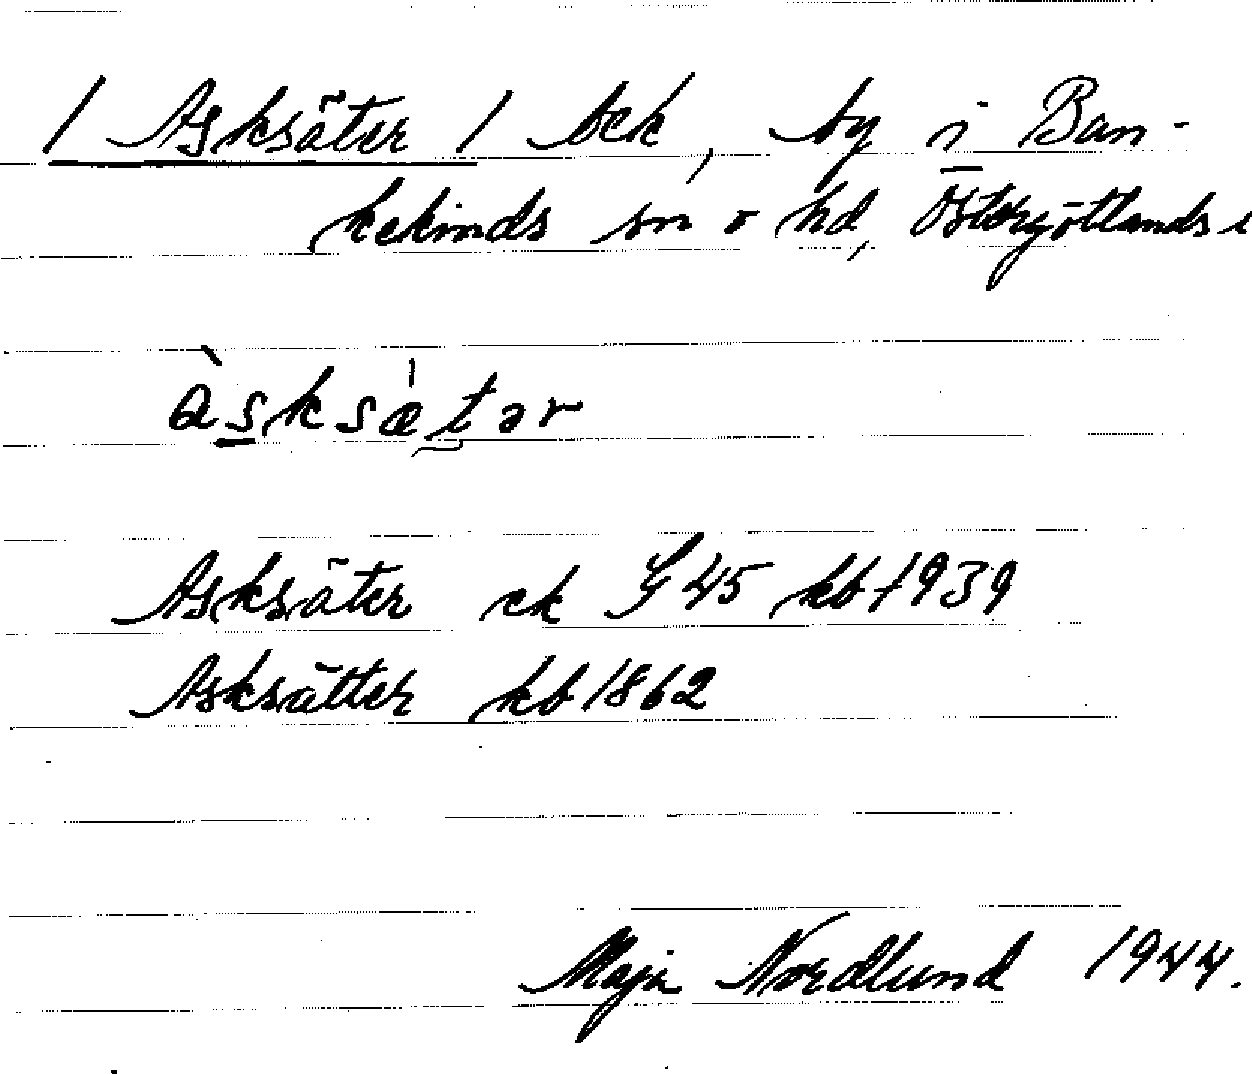 / Asksäter / bck, by i Ban-
kekinds sn o hd, Östergötlands l
àsksætər
Asksäter ek J 45 kb 1939
Asksätter kb 1862
Maja Nordlund 1944.